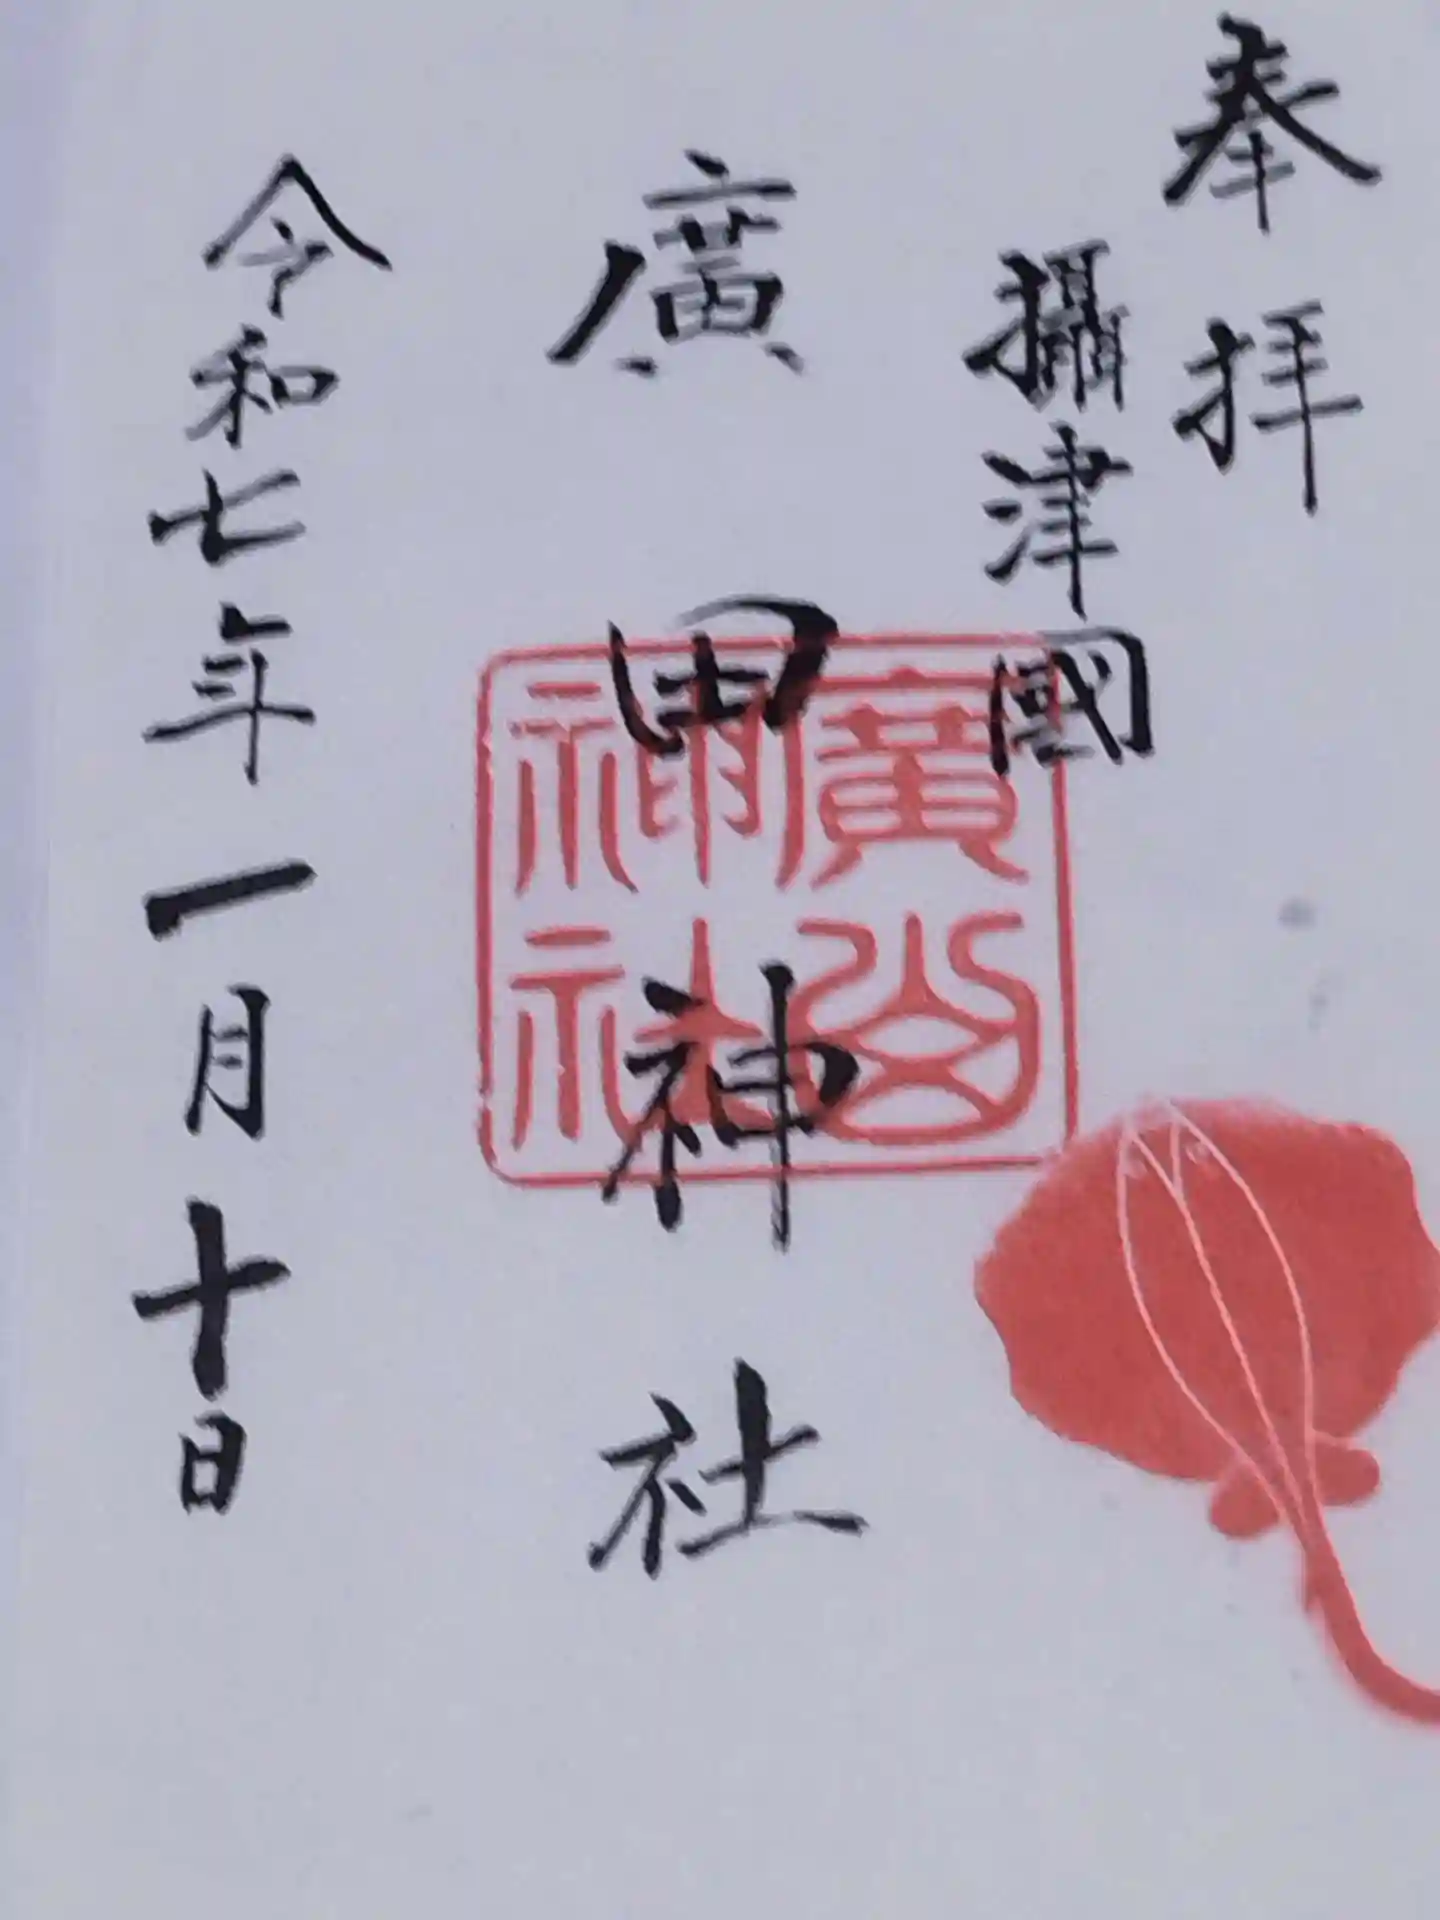 奉拝
攝津國
廣田神社
廣田神社
令和七年一月十日